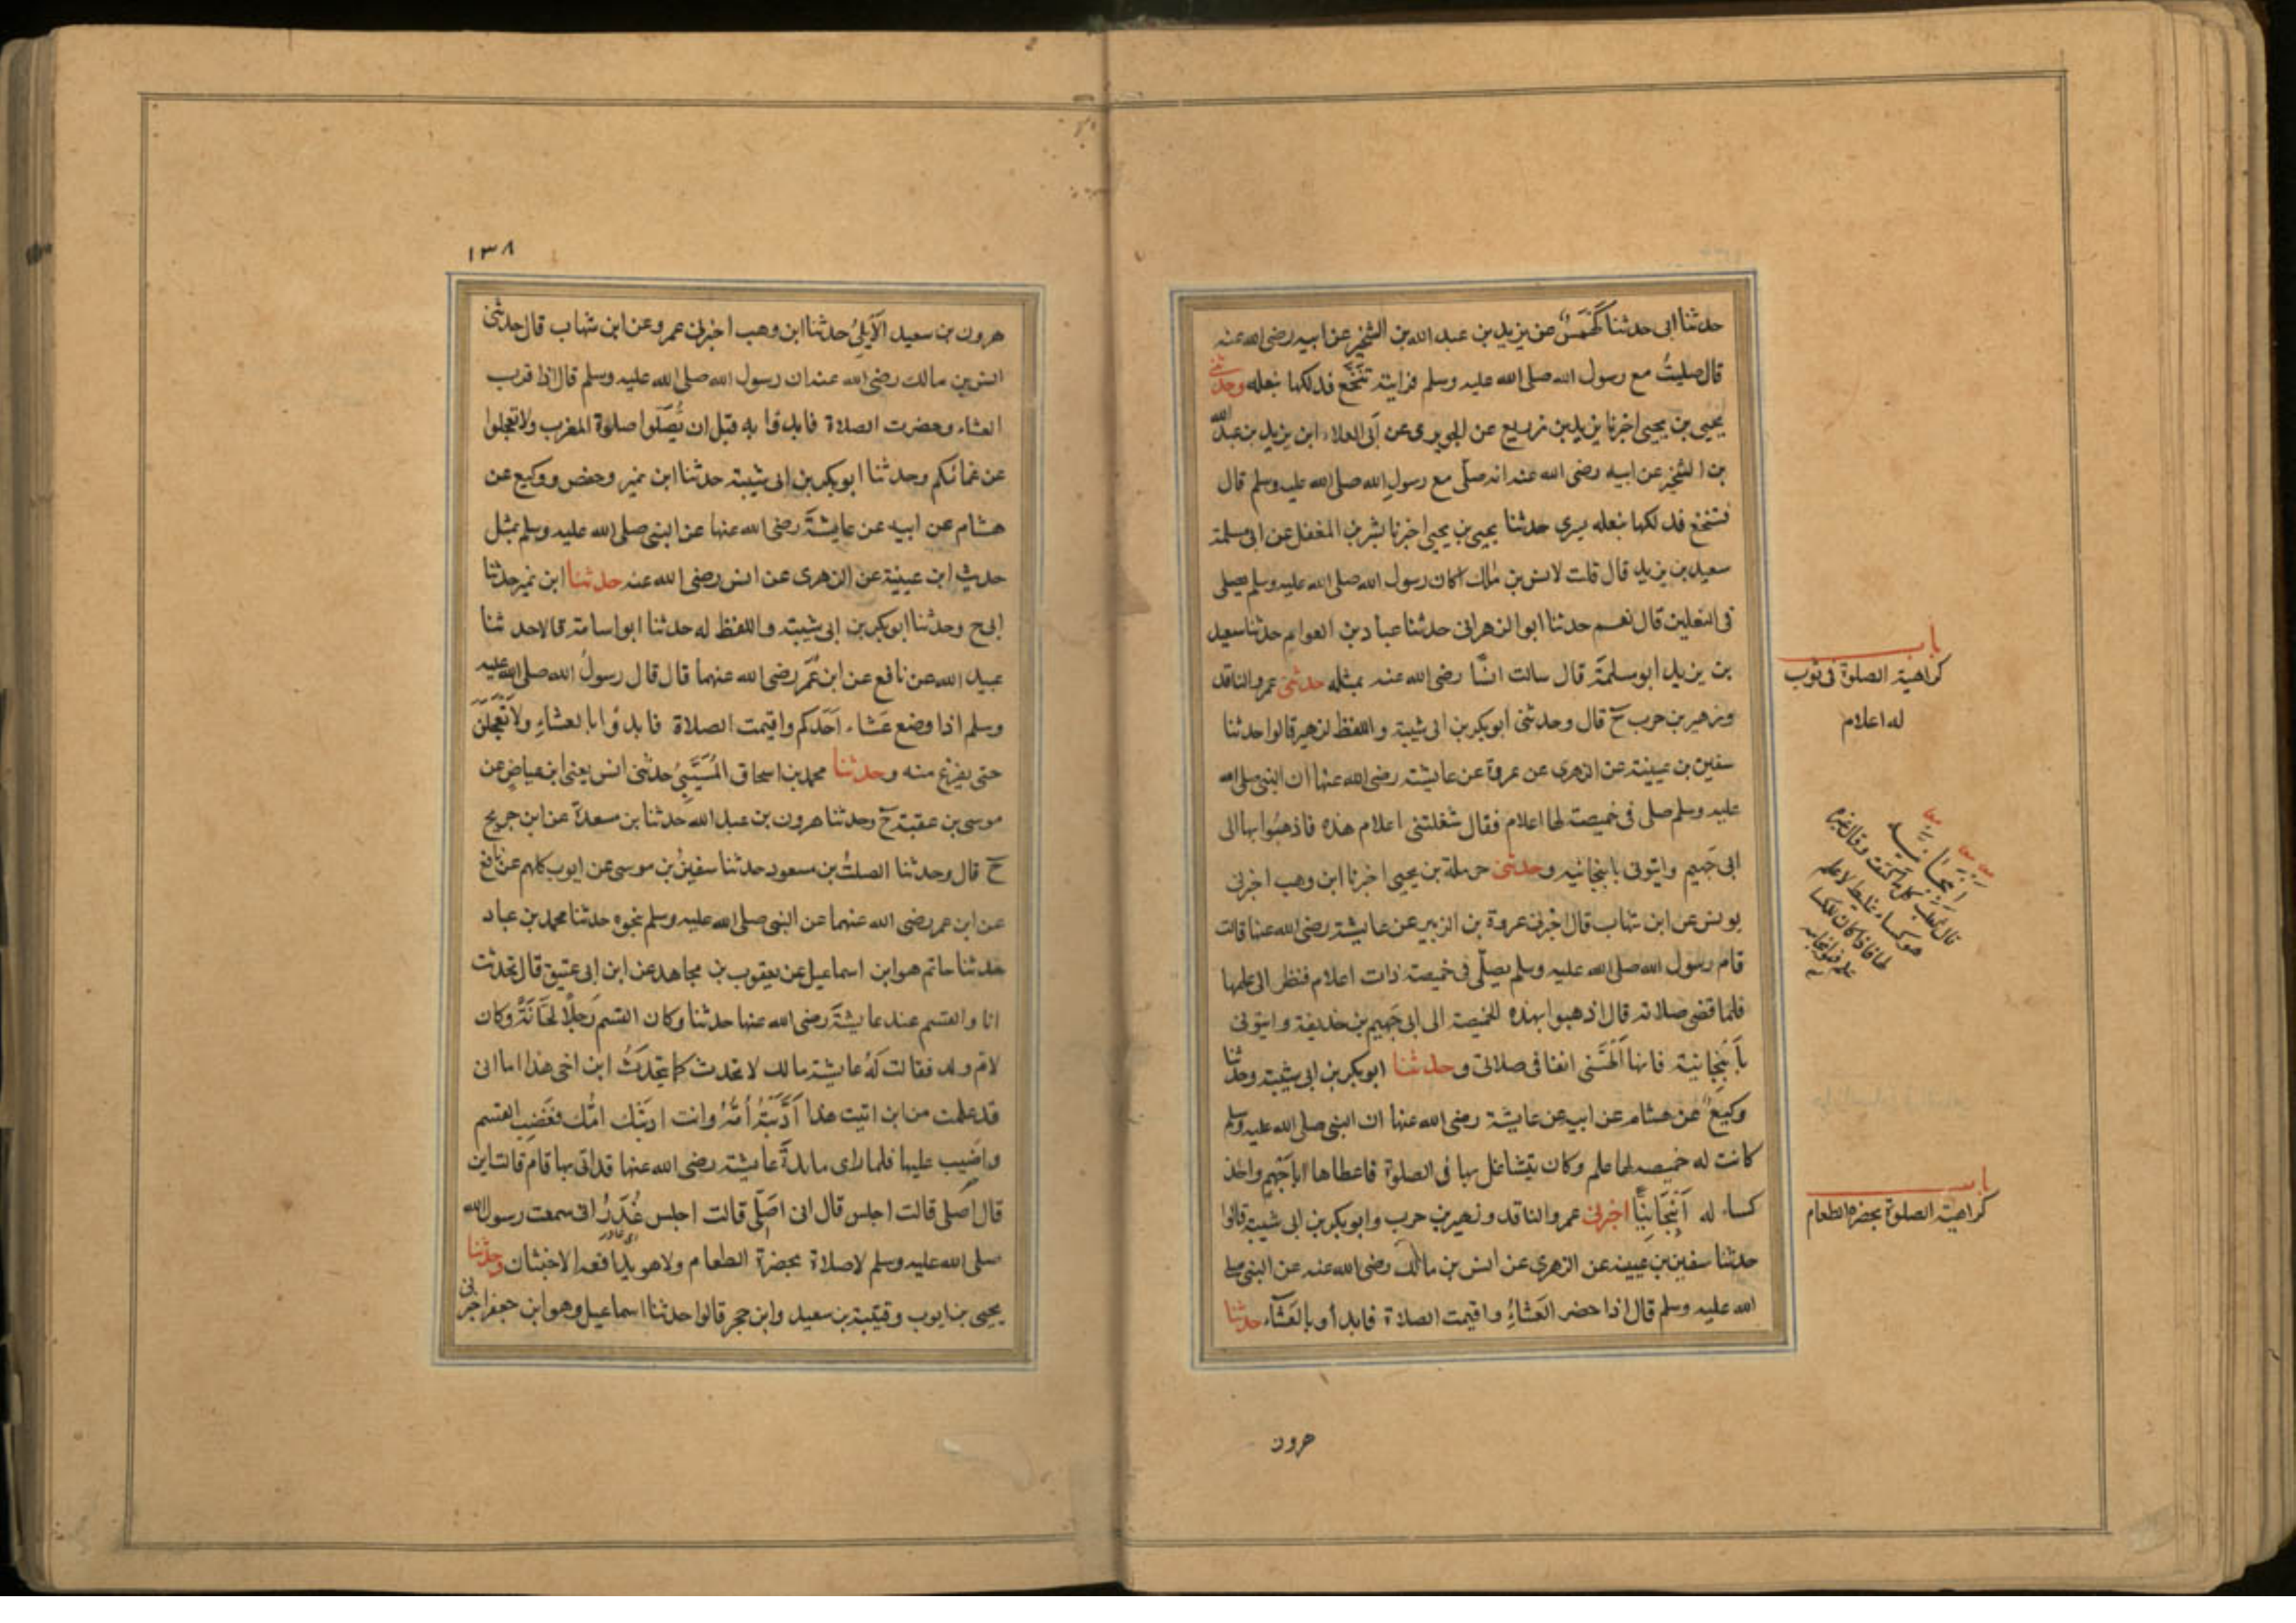 حدثنا ابى حدثنا كَهْمَسٌ عن يزيد بن عبد الله بن الشخير عن ابيه رضى الله عنه
قال صليتُ مع رسول الله صلى الله عليه وسلم فرايته تَنَخَّعَ فدلكها بنعله وحدثنى
يحيى بن يحيى اخبرنا يزيد بن زريع عن الجريرى عن ابى العلاء ابن يزيد بن عبد الله
بن الشخير عن ابيه رضى الله عنه انه صلّى مع رسولِ الله صلى الله عليه وسلم قال
فتنخع فدلكها بنعله يسرى حدثنا يحيى بن يحيى اخبرنا بشر بن المفضل عن ابى مسلمة
سعيد بن يزيد قال قلت لانس بن مالك اكان رسول الله صلى الله عليه وسلم يصلى
فى النعلين قال نعم حدثنا ابوالزهرانى حدثنا عباد بن العوام حدثنا سعيد
بن يزيد ابو سلمةَ قال سالت انسًا رضى الله عنه بمثله حدثنى عمرو الناقد
وزهير بن حرب ح قال وحدثنى أبو بكر بن ابى شيبة واللفظ لزهير قالوا حدثنا
سفين بن عيينة عن الزهرى عن عروة عن عايشة رضى الله عنها ان النبى صلى الله
عليه وسلم صلى فى خميصت لها اعلام فقال شغلتنى اعلام هذه فاذهبُوا بها الى
ابى جَهِيم وايتونى بانبجانيه وحدثنى حرملة بن يحيى اخبرنا ابن وهب اخبرنى
يونس عن ابن شهاب قال اخبرنى عروة بن الزبير عن عايشة رضى الله عنها قالت
قام رسول الله صلى الله عليه وسلم يصلّى فى خميصة ذات اعلام فنظر الى علمها
فلما قضى صلاته قال اذهبوا بهذه الخميصة الى ابى جَهِيم بن حذيفة وايتونى
بأَنْبِجانية فانها اَلْهَتْنى انفا فى صلاتى وحدثنا ابو بكر بن ابى شيبة وحدثنا
وكيعٌ عن هشام عن ابيه عن عايشة رضى الله عنها ان النبى صلى الله عليه وسلم
كانت له خميصه لها علم وكان يتشاغل بها فى الصلوة فاعطاها اباجَهمٍ واخذ
كساء له اَنْبِجَانِيًّا اخبرنى عمرو الناقد وزهير بن حرب وابو بكر بن ابى شيبة قالوا
حدثنا سفين بن عيينه عن الزهرى عن انس بن مالك رضى الله عنه عن النبى صلى
الله عليه وسلم قال اذا حضر العَشاءُ واقيمت الصلاة فابدأو بالعَشَاء حدثنا
هرون
باب
كراهية الصلوة فى ثوب
له اعلام
معا
انبجانيه
قال ثعلب
هو كساء غليظ لا علم
لها فاذا كان للكسا
علم
باب
كراهية الصلوة بحضرة الطعام
١٣٨
هرون بن سعيد الأَيلىُ حدثنا ابن وهب اخبرنى عمرو عن ابن شهاب قال حدثنى
انس بن مالك رضى الله عنه ان رسول الله صلى الله عليه وسلم قال اذا قرب
العشاء وحضرت الصلاة فابدوا به قبل ان تُصَلّوا صلوة المغرب ولا تعجلوا
عن عشائكم وحدثنا ابو بكر بن ابى شيبة حدثنا ابن نمير وحفص ووكيع عن
هشام عن ابيه عن عايشةَ رضى الله عنها عن النبى صلى الله عليه وسلم بمثل
حديث ابن عيينة عن الزهرى عن انس رضى الله عنه حدثنا ابن نمير حدثنا
ابى ح وحدثنا ابو بكر بن ابى شيبة واللفظ له حدثنا ابو اسامة قالا حدثنا
عبيد الله عن نافع عن ابن عُمَر رضى الله عنهما قال قال رسولُ الله صلى الله عليه
وسلم اذا وضع عَشاء اَحَدكم واقيمت الصلاة فابدؤا بالعشاءِ ولا تَعْجَلَنَّ
حتى يفرغ منه وحدثنا محمد بن اسحاق المُسَيَّبِىُّ حدثنى انس يعنى ابن عياضٍ عن
موسى بن عقبة ح وحدثنا هرون بن عبد الله حدثنا بن مسعدة عن ابن جريج
ح قال وحدثنا الصلتُ بن مسعود حدثنا سفينُ بن موسى عن ايوب كلهم عن نافع
عن ابن عمر رضى الله عنهما عن النبى صلى الله عليه وسلم بنحوه حدثنا محمد بن عباد
حدثنا حاتم هو ابن اسماعيل عن يعقوب بن مجاهد عن ابن ابى عتيق قال تحدثت
انا والقسم عند عايشةَ رضى الله عنها حدثنا وكان القسم رَجلًا لحّانَةً وكان
لام ولد فقالت لهُ عايشة مالك لا تحدث كما يتحدَثُ ابن اخى هذا اما انى
قد علمت من ابن اتيت هذا أدَّبَتْهُ اُمُّهُ وانت ادبَتْك امُّك فغَضِب القسم
واضَب عليها فلما راى مايدةَ عايشة رضى الله عنها قد اتى بها قام قالت اين
قال اُصَلى قالت اجلس قال انى اصَلى قالت اجلس غُدَرُ انى سمعت رسول الله
اى غادر
صلى الله عليه وسلم لاصلاة بحضرة الطعام ولا هو يدافعه الاخبثان وحدثنا
يحيى بن ايوب وقتيبة بن سعيد وابن حجر قالوا حدثنا اسماعيل وهو ابن جعفر اخبرنى